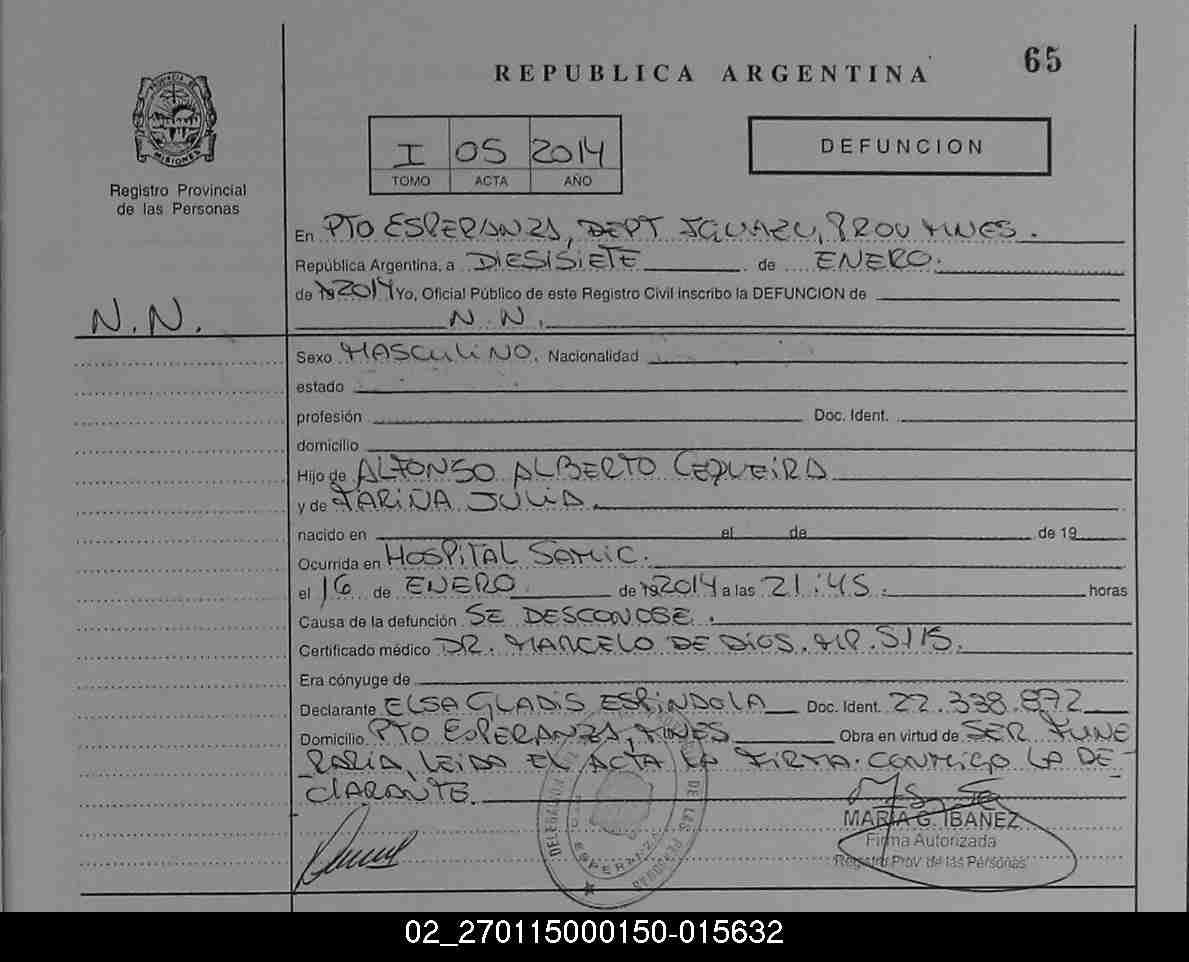 65
REPUBLICA ARGENTINA
MISIONES
Registro Provincial
de las Personas
I 05 2014
TOMO ACTA AÑO
DEFUNCION
En PTO ESPERANZA, DEPT IGUAZU, PROV MNES.
República Argentina, a DIESISIETE de ENERO.
de 2014 Yo, Oficial Público de este Registro Civil inscribo la DEFUNCION de
N.N.
N.N.
Sexo MASCULINO. Nacionalidad
estado
profesión Doc. Ident.
domicilio
Hijo de ALFONSO ALBERTO CEQUEIRA
y de FARIÑA JULIA
nacido en el de de 19
Ocurrida en HOSPITAL SAMIC.
el 16 de ENERO de 2014 a las 21:45. horas
Causa de la defunción SE DESCONOSE.
Certificado médico DR. MARCELO DE DIOS. MP. 5115.
Era cónyuge de
Declarante ELSA GLADIS ESPINDOLA Doc. Ident. 22.338.872
Domicilio PTO ESPERANZA, MNES Obra en virtud de SER FUNE
RARIA, LEIDA EL ACTA LA FIRMA CONMIGO LA DE-
CLARANTE.
MARIA G. IBAÑEZ
Firma Autorizada
Registro Prov. de las Personas
DELEGACION
DE LAS PERSONAS
ESPERANZA
02_270115000150-015632